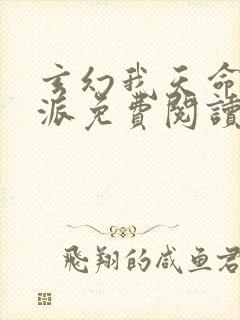 玄幻我天命
派免費閱讀
飛翔的咸鱼君